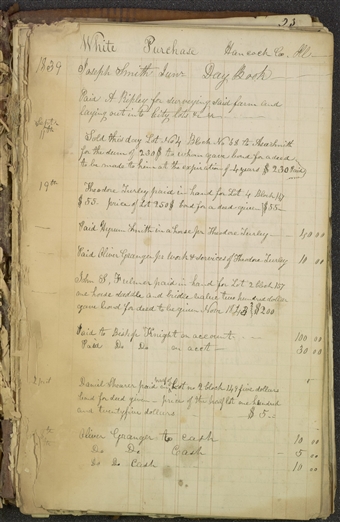 23
White Purchase Hancock Co. Ill—
1839 Joseph Smith Junr Day Book
Paid A Ripley for surveying said farm and
laying out into City lots
17th Sold this day Lot No 4 Block No 68 to
for the sum of 230$ to whom gave bond for a deed
to be made to him at the expiration of 4 years $ 230
19th Theodore Turley paid in hand for Lot 4 Block 147
$ 55. price of Lot 250$ bond for a deed given $55.—
Paid Hyrum Smith in a house for Theodore Turley
Paid Oliver Granger for work & services of Theodore Turley 10 00
John S. Fulmer paid in hand for Lot 2 block 157
one horse saddle and bridle value two hundred dollars
gave bond for deed to be given Nov 1843 $200
Paid to Bishop Knight on account — 100 00
Paid Do Do on acct — 30 00
2nd Daniel Shearer paid on half Lot No 2 block 149 five dollars 5
bond for deed given — price of the half lot one hundred
and twenty five dollars — $ 5—
Oliver Granger to cash 10 00
Do Do Cash 5 00
Do Do Cash 10 00